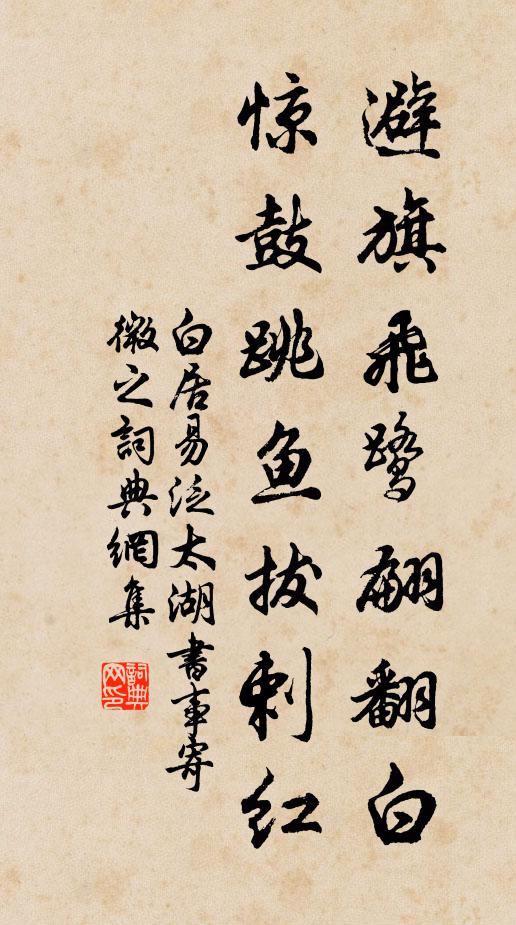 避旗飛鹭翩翻白
惊鼓跳鱼拔刺红
白居易泛太湖書事寄
微之詞典網集
詞典网印